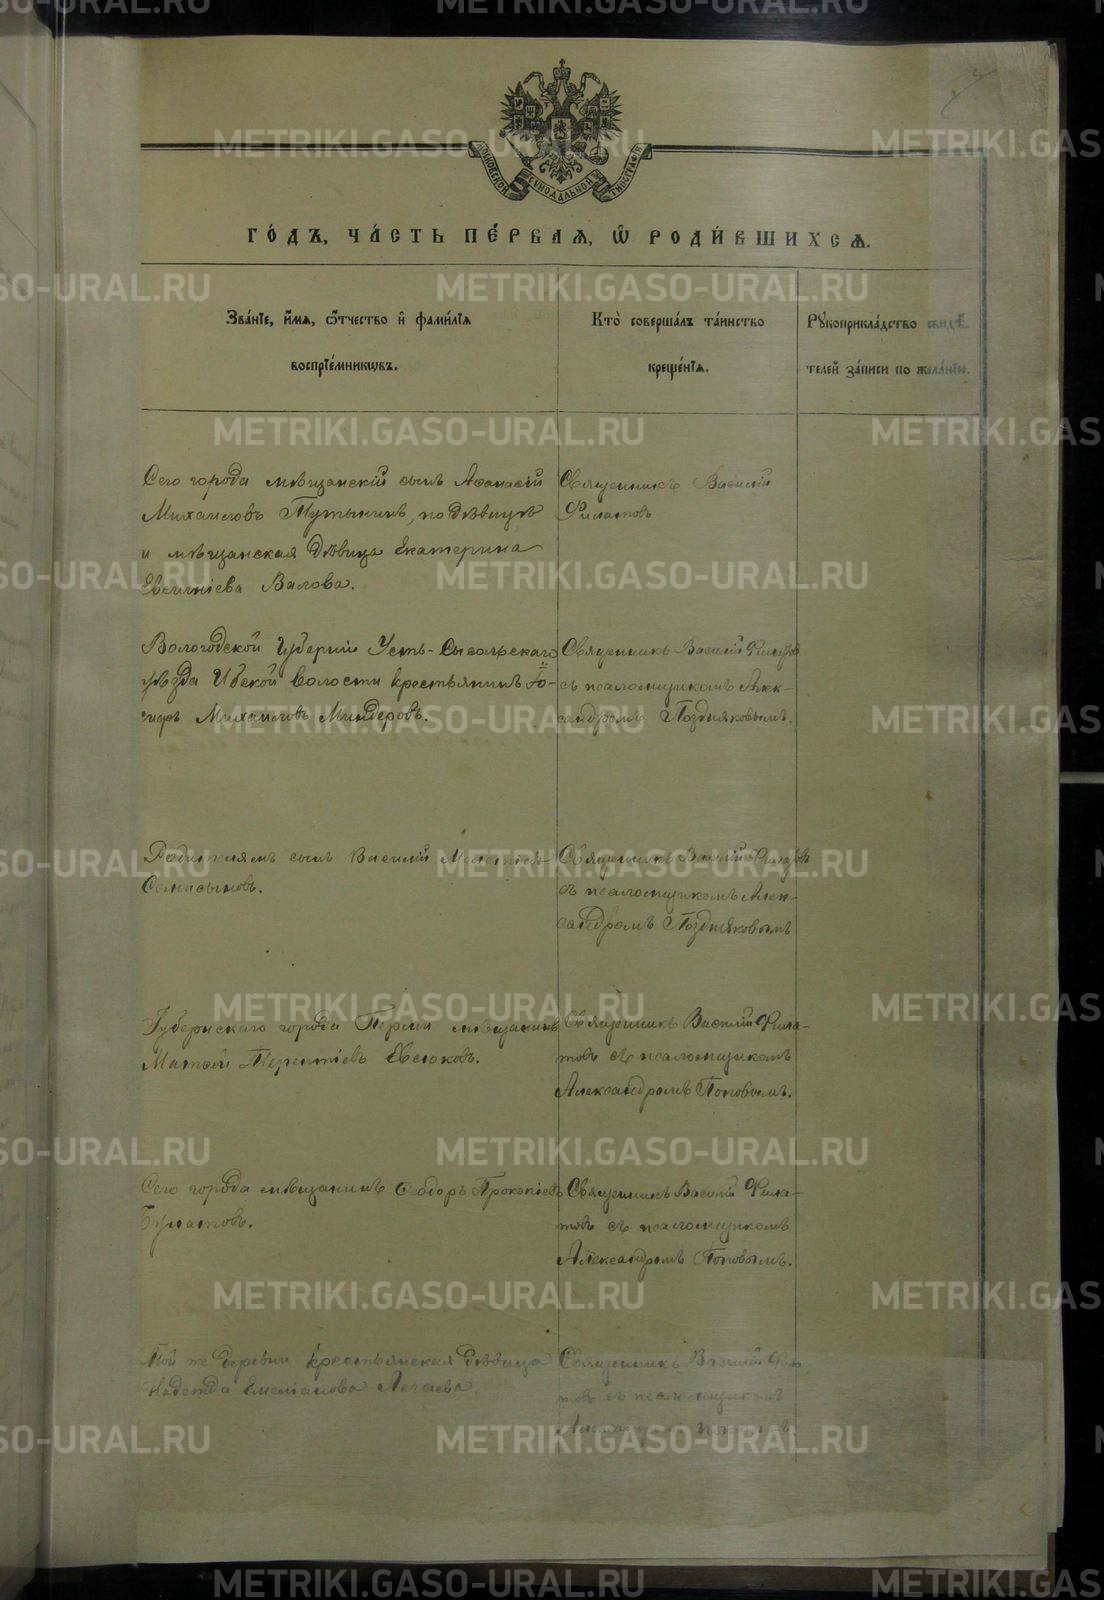 МОСКОВСКОЙ СУНОДАЛЬНОЙ ТИПОГРАФІИ
ГО́ДЪ, ЧА́СТЬ ПЕ́РВАЯ, Ѡ҆ РОДИ́ВШИХСЯ.
Зва́нїе, и҆́мя, ѻ҆́тчество и҆ фами́лїя
воспрїе́мникѡвъ.
Кто̀ соверша́лъ та́инство
креще́нїя.
Рꙋкоприкла́дство свидѣ́-
телей за́писи по жела́нїю.
Сего города мѣщанскій сынъ Аѳанасій
Михаиловъ, по дѣвицѣ
и мѣщанская дѣвица Екатерина
Валова.
Священникъ Василій
Филатовъ
Вологодской Губерніи Усть-Сысольскаго
уѣзда Ибской волости крестьянинъ Іо-
сифъ Михаиловъ Миндеровъ.
Священникъ Василій Филатовъ
съ псаломщикомъ Алек-
сандромъ Поздняковымъ.
сынъ Василій
Семисыновъ.
Священникъ Василій Филатовъ
съ псаломщикомъ Алек-
сандромъ Поздняковымъ
Губернскаго города Перми мѣщанинъ
Матѳей Терентіевъ Евсюковъ.
Священникъ Василій Фила-
товъ съ псаломщикомъ
Александромъ Поповымъ.
Сего города мѣщанинъ Ѳедоръ Прокопіевъ
Булатовъ.
Священникъ Василій Фила-
товъ съ псаломщикомъ
Александромъ Поповымъ.
Той же деревни крестьянская дѣвица
Надежда Емеліанова
Священникъ Василій Фила-
товъ съ псаломщикомъ
Александромъ Поповымъ.
METRIKI.GASO-URAL.RU